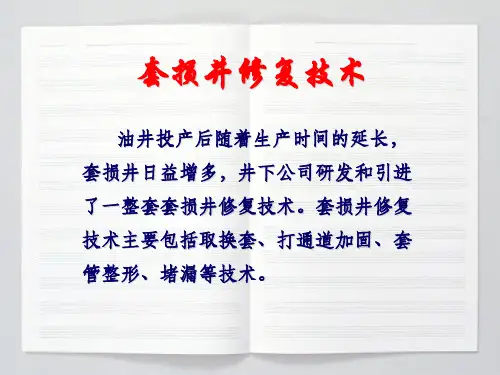 套损井修复技术
油井投产后随着生产时间的延长，
套损井日益增多，井下公司研发和引进
了一整套套损井修复技术。套损井修复
技术主要包括取换套、打通道加固、套
管整形、堵漏等技术。